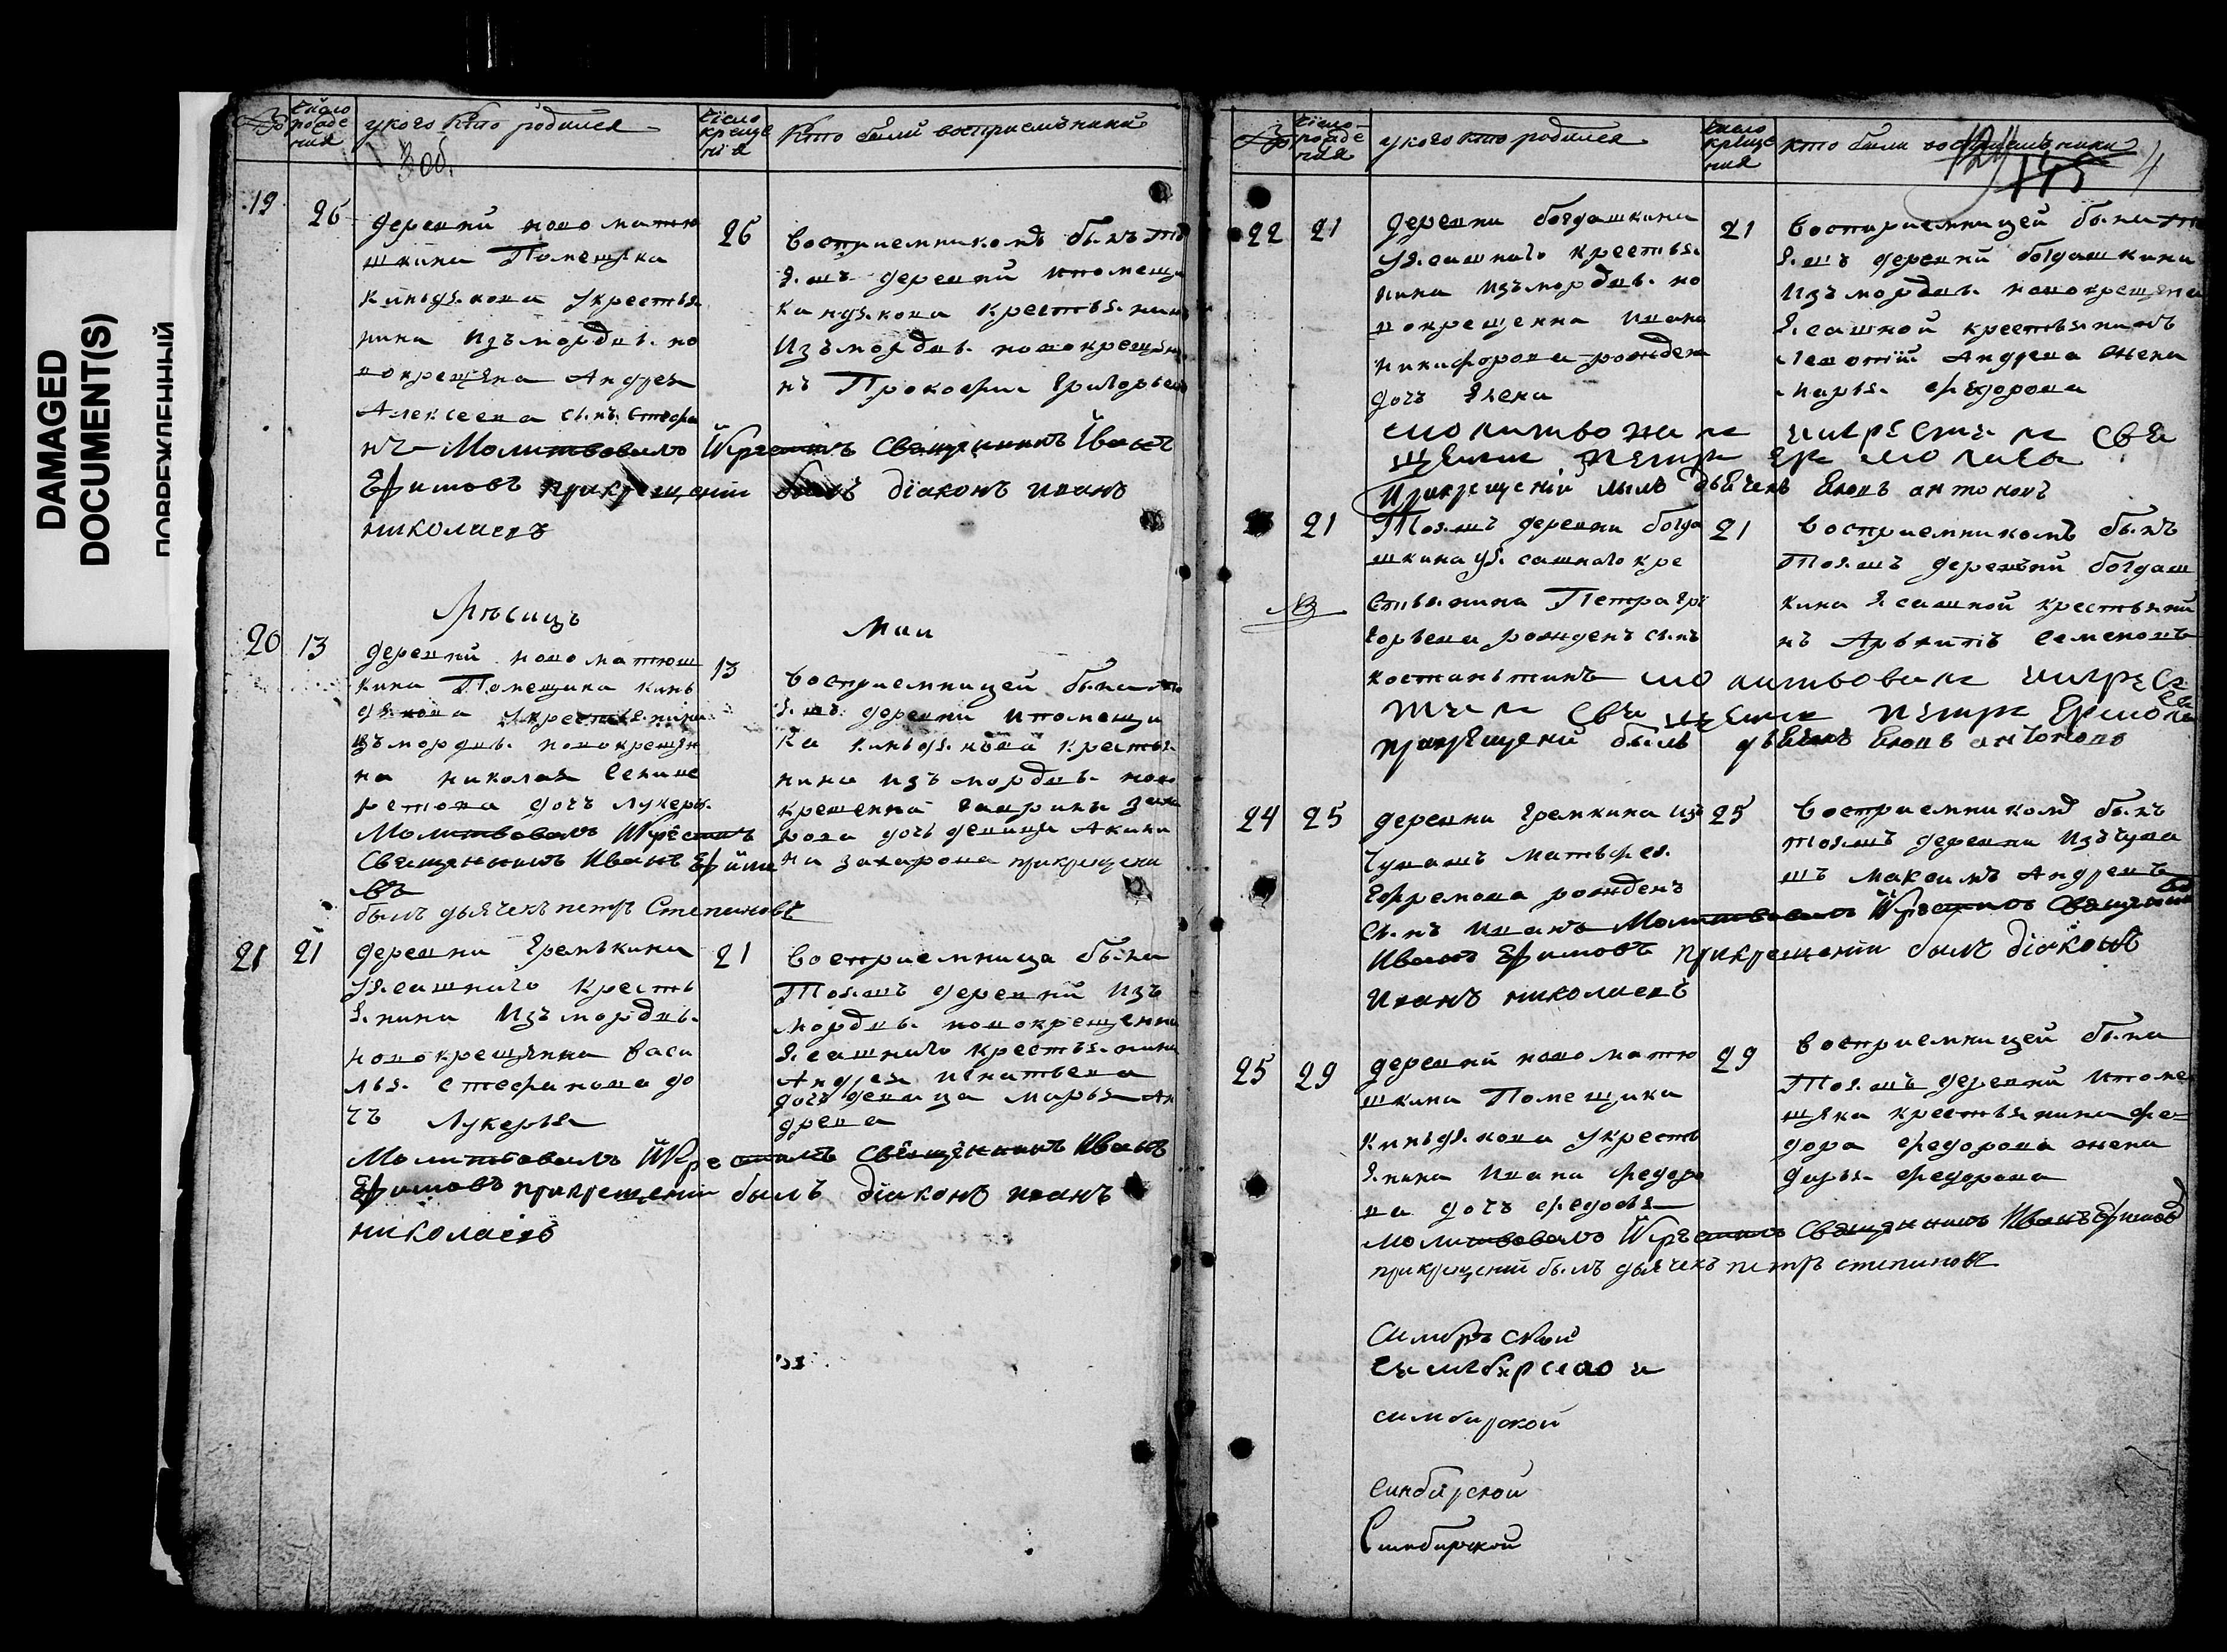 DAMAGED
DOCUMENT(S)
ПОВРЕЖДЕННЫЙ
№
число рожде ния
у кого кто родился
число креще нія
кто были восприемъники
3 об.
19
26
деревни новоматю
шкина Помещика
киньдякова у крестья
нина изъ мордвы но
вокрещена Андрея
Алексеева сынъ Стефа
нъ Молитвовалъ Й крестилъ Священникъ Иванъ
Ефимовъ при крещении былъ діаконъ иванъ
николаевъ
26
восприемникомъ былъ то
я. жъ деревни и помещи
ка киндякова крестьянинъ
изъ мордвы новокреще
нъ Прокофии Григорьевъ
Месяцъ Маи
20
13
деревни новоматюш
кина Помещика кинь
дякова у крестьянина
изъ мордвы новокрещен
на николая Селиве
рстова дочь лукерья
Молитвовалъ И крестилъ
Священникъ Иванъ Ефимо
въ
былъ дьячекъ петръ Степановъ
13
восприемницей была то
я. жъ деревни и помещи
ка киньдякова крестья
нина изъ мордвы ново
крещенна гаврилы заха
рова дочь девица Акули
на захарова при крещени
21
21
деревни Еремкина
у ясашнаго кресть
янина изъ мордвы
новокрещенна васи
лья стефанова до
чь Лукерья
Молитвовалъ Й крестилъ Священникъ Иванъ
Ефимовъ при крещении былъ діаконъ иванъ
николаевъ
21
восприемница была
Тоя. жъ деревни изъ
мордвы новокрещенна
ясашнаго крестьянина
Андрея игнатьева
дочь девица марья Ан
дреева
№
число рожде ния
у кого кто родился
число креще ния
кто были восприемъники
124
145
4
22
21
деревни богдашкина
у ясашнаго крестья
нина изъ мордвы но
вокрещенна ивана
никифорова рожден
дочь Елена
молитвовалъ и крестилъ свя
щеникъ петръ ермолаевъ
При крещеній былъ дьячекъ Евонъ антоновъ
21
восприемницей была то
я. жъ деревни богдашкина
изъ мордвы новокрещена
ясашной крестьянинъ
Леонтій Андреева жена
марья федорова
21
Тоя. жъ деревни богда
шкина у ясашнаго кре
стьянина Петра Гри
горьева рожденъ сынъ
костаньтинъ молитвовалъ и крес
тилъ священикъ петръ Ермола
евъ
при крещений былъ дьячекъ Евонъ антоновъ
№
21
восприемникомъ былъ
тоя. жъ деревни богдаш
кина ясашной крестьяни
нъ Архипъ семеновъ
24
25
деревни Еремкина изъ
чувашъ матьфея
Ефремова рожденъ
сынъ иванъ Молитвовалъ Й крестилъ Священникъ
Иванъ Ефимовъ при крещении былъ діаконъ
иванъ николаевъ
25
восприемникомъ былъ
тоя. жъ деревни изъ чува
шъ максимъ Андреевъ
25
29
деревни новоматю
шкина Помещика
киньдякова у кресть
янина ивана федоро
ва дочь федосья
молитвовалъ Й крестилъ Священникъ Иванъ Ефимовъ
при крещеніи былъ дьячекъ петръ степановъ
29
восприемницей была
тоя. жъ деревни и поме
щика крестьянина фе
дора федорова жена
дарья федорова
Симбръской
симбирскои
синбирской
Синбирской